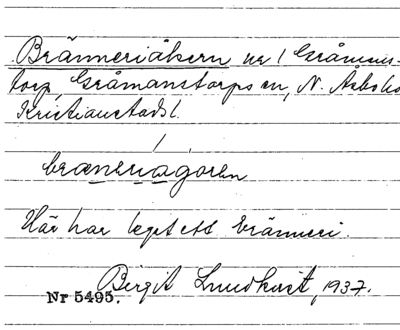 Bränneriåkern nr 1 Gråmans-
torp, Gråmanstorps sn, N. Åsbo hd
Kristianstads l.
brænəriagorən
Här har legat ett bränneri.
Birgit Lundkvist, 1937.
Nr 5495.